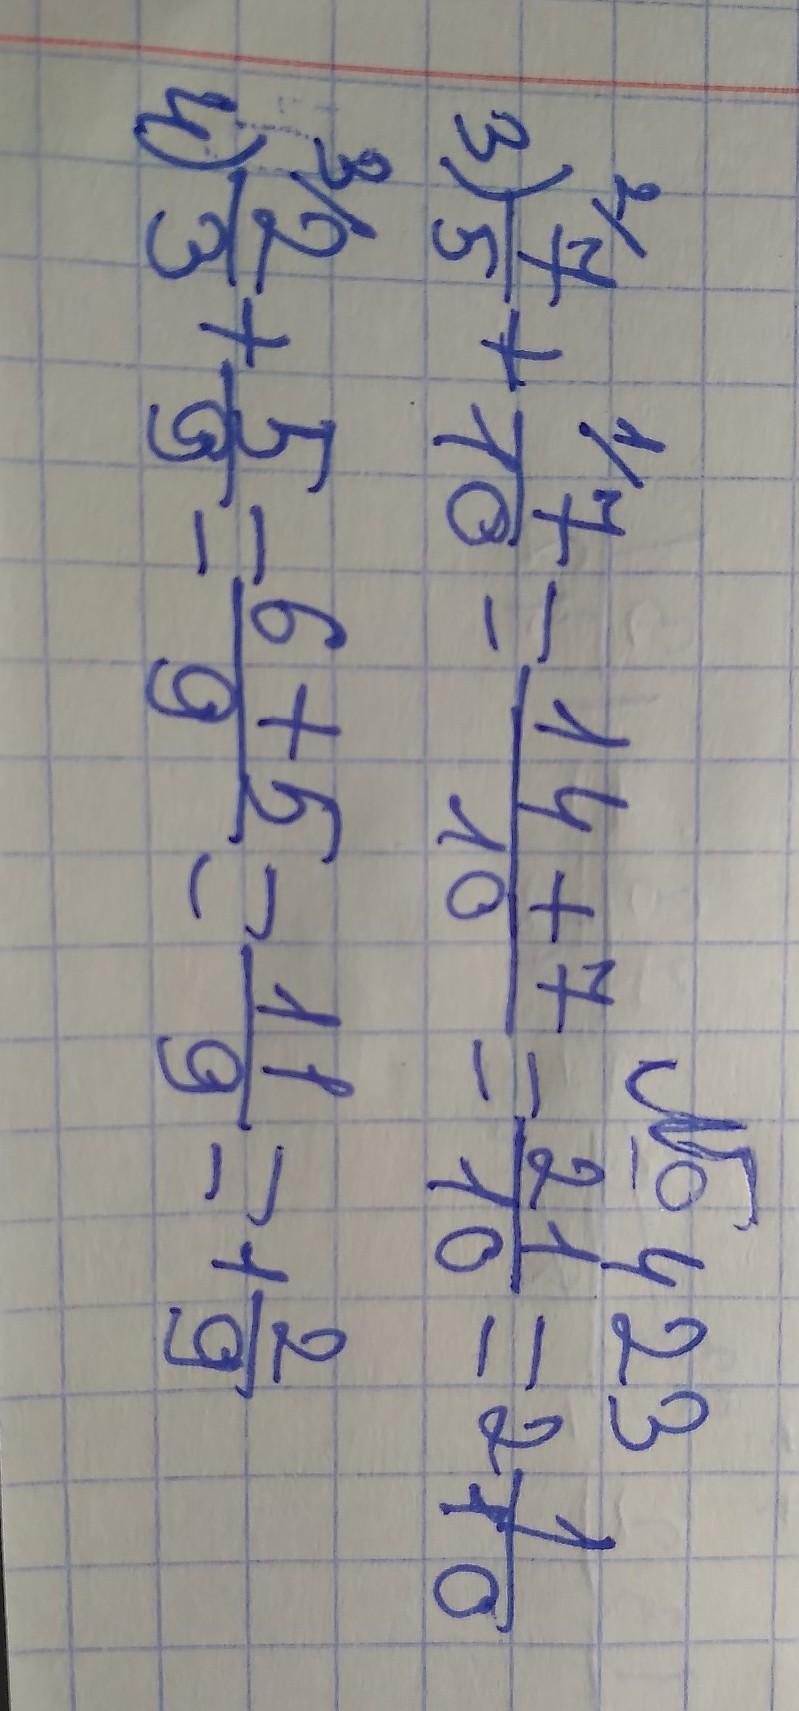 № 423
3) ²/7/5 + ¹/7/10 = 14+7/10 = 21/10 = 2 1/10
4) ³/2/3 + 5/9 = 6+5/9 = 11/9 = 1 2/9